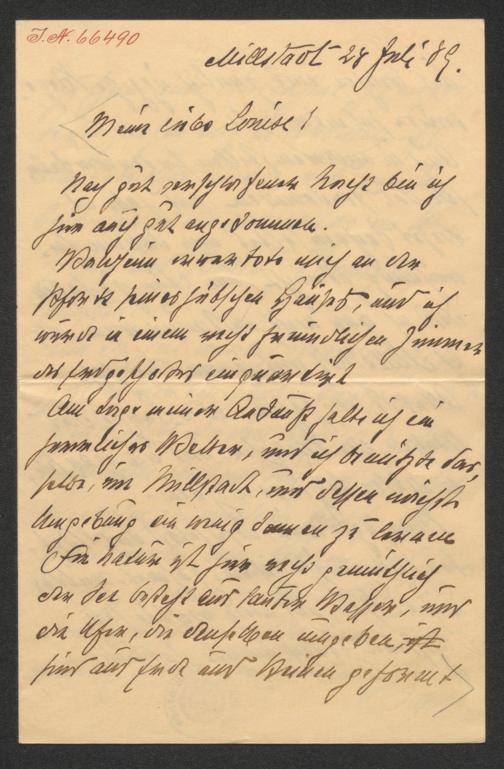 I. N. 66490
Millstatt 28 Juli 89.
Meine liebe Louise!
Nach gut verschlafener Nacht bin ich
hier auch gut angekommen.
erwartete mich an der
Pforte seines hübschen Hauses, und ich
wurde in einem recht freundlichen Zimmer
des einquartirt
Am Tage meiner Ankunft hatte ich ein
herrliches Wetter, und ich benützte das,
selbe, um Millstatt, und dessen nächste
Umgebung ein wenig kennen zu lernen
Die Natur ist hier recht gemüthlich
der See besteht aus lauter Wasser, und
die Ufer, die denselben umgeben, ist
sind aus Erde und Steinen geformt